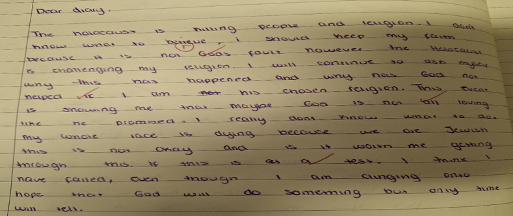 Dear diary,
The holocaust is killing people and religion. I dont
know what to believe. I should keep my faith
because it is not Gods fault however, the Holocaust
is challenging my religion. I will continue to ask
why this has happened and why has God not
helped if I am not his chosen religion. This event
is showing me that maybe God is not all loving
like he promised. I really dont know what to do.
my whole race is dying because we are Jewish
this is not okay and is it worth me getting
through this. If this is a test. I think I
have failed, even though I am clinging onto
hope that God will do something but only time
will tell.